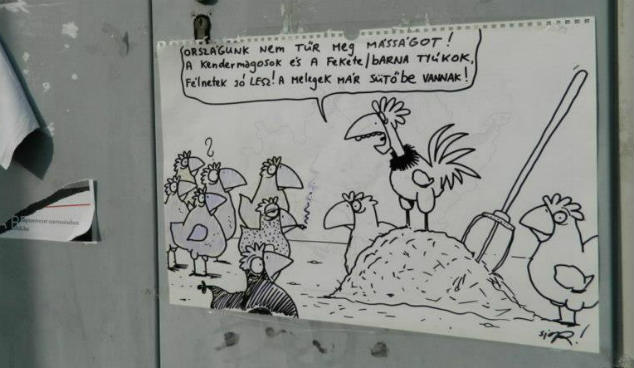 ORSZÁGUNK NEM TŰR MEG MÁSSÁGOT!
A KENDERMAGOSOK ÉS A FEKETE/BARNA TYÚKOK,
FÉLHETEK JÓ LESZ! A MELEGEK MÁR SÜTŐBE VANNAK!
?